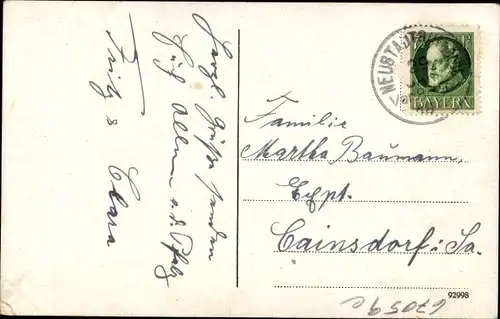 Herzl. Grüße senden
Euch Allen a. d. Pfalz
Fritz & Clara
NEUSTADT
BAYERN
Familie
Martha Baumann,
Expt.
Cainsdorf i. Sa.
92998